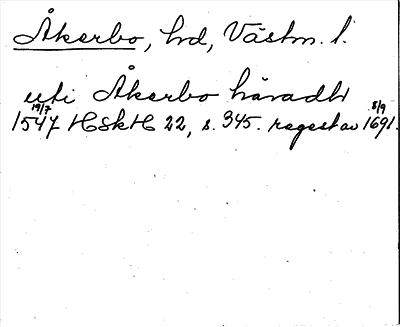 Åkerbo, hd, Västm. l.
uti Åkerbo häradh
19/7 1547 HSkH 22, s. 345. regest av 8/9 1691.